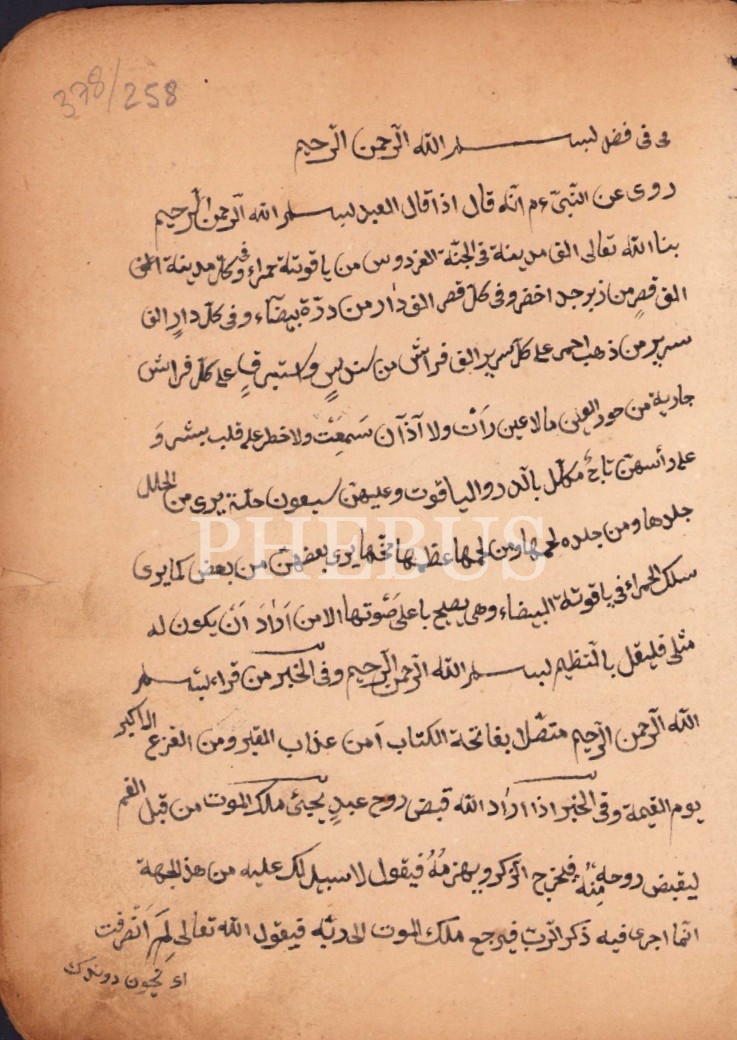 378/258
فى فضل بسم الله الرّحمن الرّحيم
روى عن النّبىّ ءم انّه قال اذا قال العبد بسم الله الرّحمن الرّحيم
بنا الله تعالى الف مدينة فى الجنّة الفردوس من ياقوتة حمراء وفى كلّ مدينة
الف قصرٍ من زبرجد اخضر وفى كلّ قصر الف دار من درّة بيضآء وفى كلّ دارٍ الف
سريرٍ من ذهب احمر على كلّ سرير الف فراش من سندسٍ واستبرقٍ على كلّ فراش
جارية من حور العين ما لا عين رَأت ولا آذآن سَمِعَت ولا خطر على قلب بشر وَ
على رأسهنّ تاجٌ مكلّل بالدر والياقوت وعليهنّ سبعون حلّة يرى من الحلل
جلدها ومن جلده لحمها ومن لحمها عظمها مخّها يرى بعضهنّ من بعض كما يرى
سلك الحمراء فى ياقوتة البيضاء وهى يصيح باعلى صَوْتها الا من اَرادَ اَنْ يكون له
مثلى فليقل بالتّعظيم بسم الله الرّحمن الرّحيم وفى الخبر من قراء بسم
الله الرّحمن الرّحيم متّصلا بفاتحة الكتاب اَمن عذاب القبر ومن الفزع الاكبر
يوم القيمة وفى الخبر اذا اراد الله قبض روح عبدٍ يجيئ ملك الموت من قبل الفم
ليقبض روحه مِنْهُ فيخرج الذّكر ويهزمُهُ فيقول لا سبيل لك عليه من هذ الجهة
انّما اجرى فيه ذكر الرّبّ فيرجع ملك الموت الى ربّه فيقول الله تعالى لِمَ اَنْصرفت
اى نيچون دوندك
PHEBUS